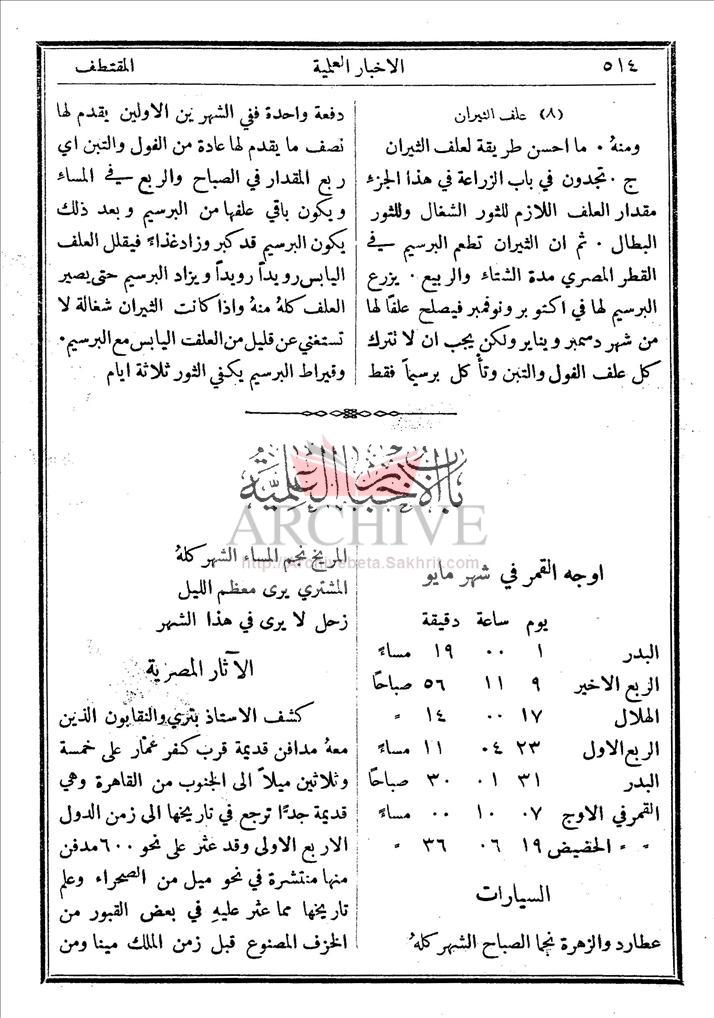 ٥١٤ الاخبار العلمية المقتطف
(٨) علف الثيران
ومنهُ ٠ ما احسن طريقة لعلف الثيران
ج ٠ تجدون في باب الزراعة في هذا الجزء
مقدار العلف اللازم للثور الشغال وللثور
البطال ٠ ثم ان الثيران تطعم البرسيم في
القطر المصري مدة الشتاء والربيع ٠ يزرع
البرسيم لها في اكتوبر ونوفمبر فيصلح علفًا لها
من شهر دسمبر ويناير ولكن يجب ان لا تترك
كل علف الفول والتبن وتأكل برسيماً فقط
دفعة واحدة ففي الشهرين الاولين يقدم لها
نصف ما يقدم لها عادة من الفول والتبن اي
ربع المقدار في الصباح والربع في المساء
ويكون باقي علفها من البرسيم وبعد ذلك
يكون البرسيم قد كبر وزاد غذاءً فيقلل العلف
اليابس رويداً رويداً ويزاد البرسيم حتى يصير
العلف كلهُ منهُ واذا كانت الثيران شغالة لا
تستغني عن قليل من العلف اليابس مع البرسيم ٠
وقيراط البرسيم يكفي الثور ثلاثة ايام
باب الاخبار العلمية
ARCHIVE
http://Archivebeta.Sakhrit.com
اوجه القمر في شهر مايو
يوم ساعة دقيقة
البدر ١ ٠٠ ١٩ مساءً
الربع الاخير ٩ ١١ ٥٦ صباحًا
الهلال ١٧ ٠٠ ١٤ "
الربع الاول ٢٣ ٠٤ ١١ مساءً
البدر ٣١ ٠١ ٣٠ صباحًا
القمر في الاوج ٠٧ ١٠ ٠٠ مساءً
" " الحضيض ١٩ ٠٦ ٣٦ "
السيارات
عطارد والزهرة نجما الصباح الشهر كلهُ
المريخ نجم المساء الشهر كلهُ
المشتري يرى معظم الليل
زحل لا يرى في هذا الشهر
الآثار المصرية
كشف الاستاذ بتري والنقابون الذين
معهُ مدافن قديمة قرب كفر عمّار على خمسة
وثلاثين ميلاً الى الجنوب من القاهرة وهي
قديمة جدًّا ترجع في تاريخها الى زمن الدول
الاربع الاولى وقد عثر على نحو ٦٠٠ مدفن
منها منتشرة في نحو ميل من الصحراء وعلم
تاريخها مما عثر عليهِ في بعض القبور من
الخزف المصنوع قبل زمن الملك مينا ومن